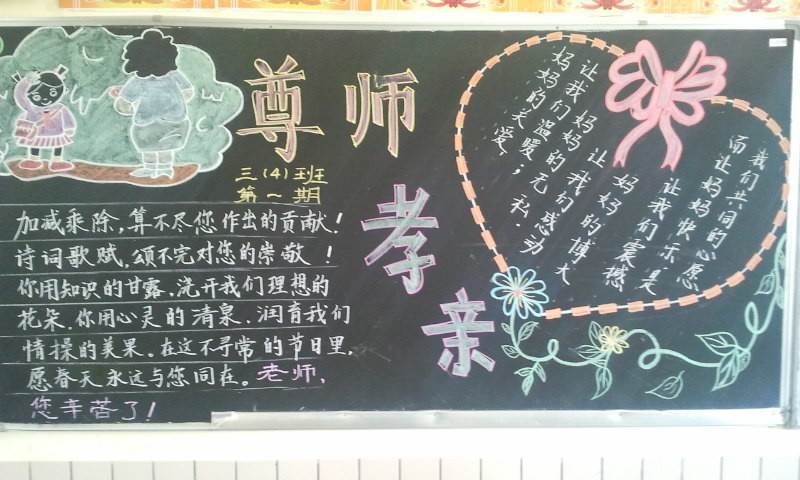 尊师
孝亲
三(4)班
第一期
加减乘除,算不尽您作出的贡献!
诗词歌赋,颂不完对您的崇敬!
你用知识的甘露、浇开我们理想的
花朵.你用心灵的清泉.润育我们
情操的美果。在这不寻常的节日里,
愿春天永远与您同在。老师,
您辛苦了!
妈妈的关爱,
让我们温暖;
妈妈的无私,
让我们感动
妈妈的博大
让我们震撼
而让妈妈快乐,是
我们共同的心愿